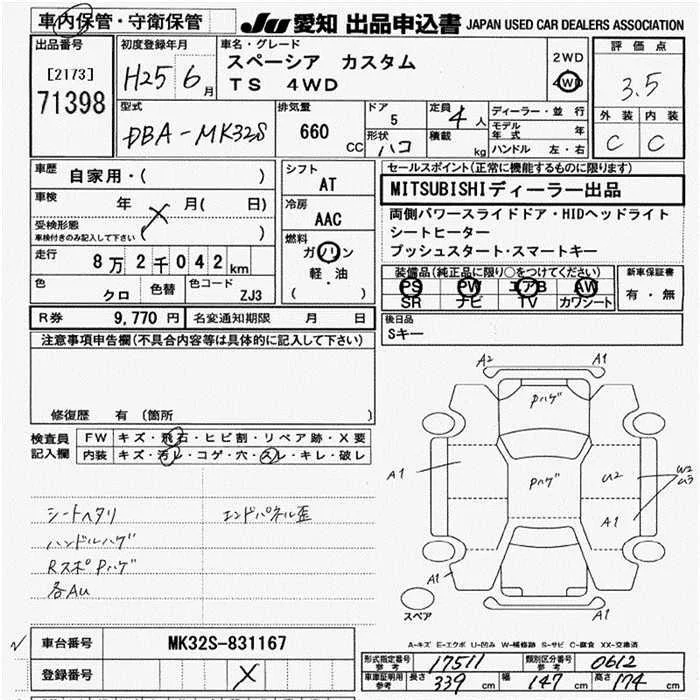 車内保管・守衛保管
JU 愛知 出品申込書 JAPAN USED CAR DEALERS ASSOCIATION
出品番号
[2173]
71398
初度登録年月
H25 6月
車名・グレード
スペーシア カスタム
TS 4WD
2WD
4WD
評価点
3.5
外装 内装
C C
型式
DBA-MK32S
排気量
660 CC
ドア
5
形状
ハコ
定員 4人
積載 kg
ディーラー・並行
モデル年式 年
ハンドル 左・右
車歴
自家用・( )
車検
年 月( 日)
受検形態
車検付きのみ記入して下さい ( )
走行
8万2千042km
色
クロ
色替
色コード
ZJ3
シフト
AT
冷房
AAC
燃料
ガソリン
軽・油
( )
セールスポイント(正常に機能するものに限ります)
MITSUBISHIディーラー出品
両側パワースライドドア・HIDヘッドライト
シートヒーター
プッシュスタート・スマートキー
装備品(純正品に限り○をつけてください)
PS PW エアB AW
SR ナビ TV カワシート
新車保証書
有・無
R券 9,770円 名変通知期限 月 日
後日品
Sキー
注意事項申告欄(不具合内容等は具体的に記入して下さい)
修復歴 有 〔箇所 〕
検査員記入欄
FW キズ・飛石・ヒビ割・リペア跡・X要
内装 キズ・汚レ・コゲ・穴・スレ・キレ・破レ
シートヘタリ エンドパネル歪
ハンドルハゲ
RスポPハゲ
各AU
A2 A1
Pハゲ
A1 Pハゲ U2 W2
ムラ
A1
A1
A1
スペア
A-キズ E-エクボ U-凹み W-補修跡 S-サビ C-腐食 XX-交換済
車台番号 MK32S-831167
登録番号 X
型式指定番号 参考 17511 類別区分番号 参考 0612
車庫証明用 参考 長さ 339 cm 幅 147 cm 高さ 174 cm